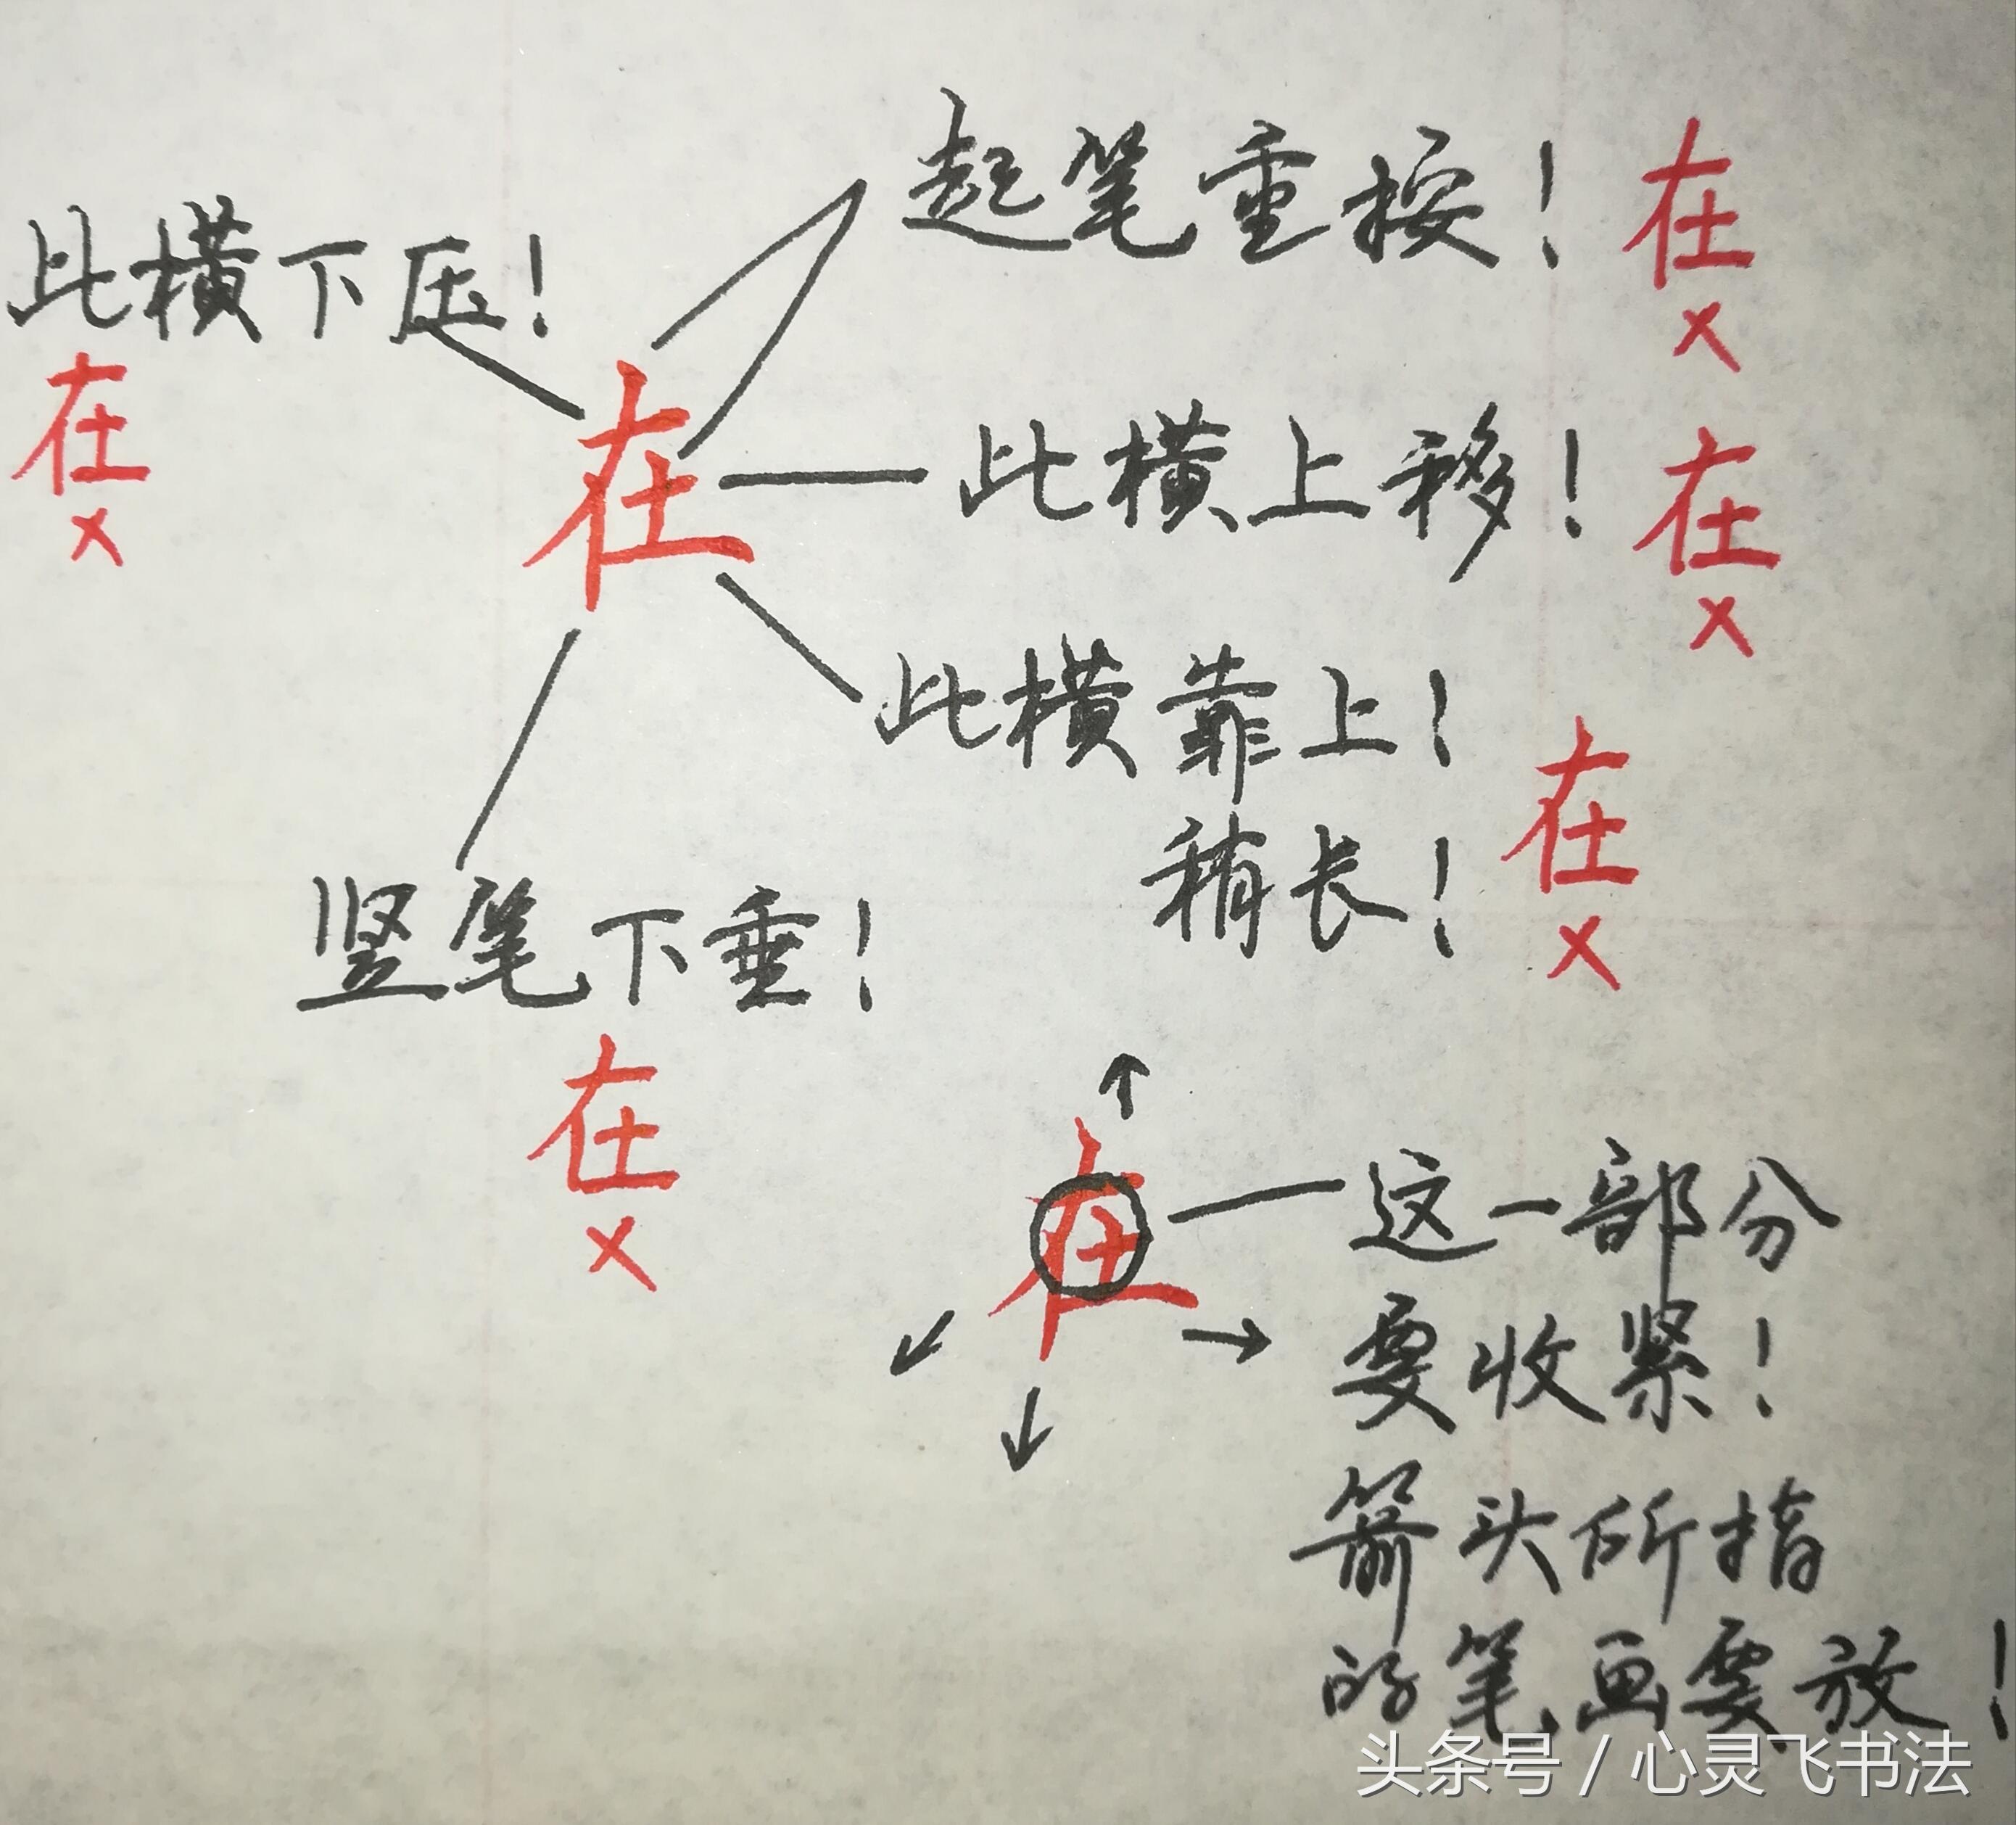 起笔重按！
在
×
此横下压！
在
×
在
此横上移！
在
×
此横靠上！
稍长！
在
×
竖笔下垂！
在
×
在
这一部分
要收紧！
箭头所指
的笔画要放！
头条号 / 心灵飞书法